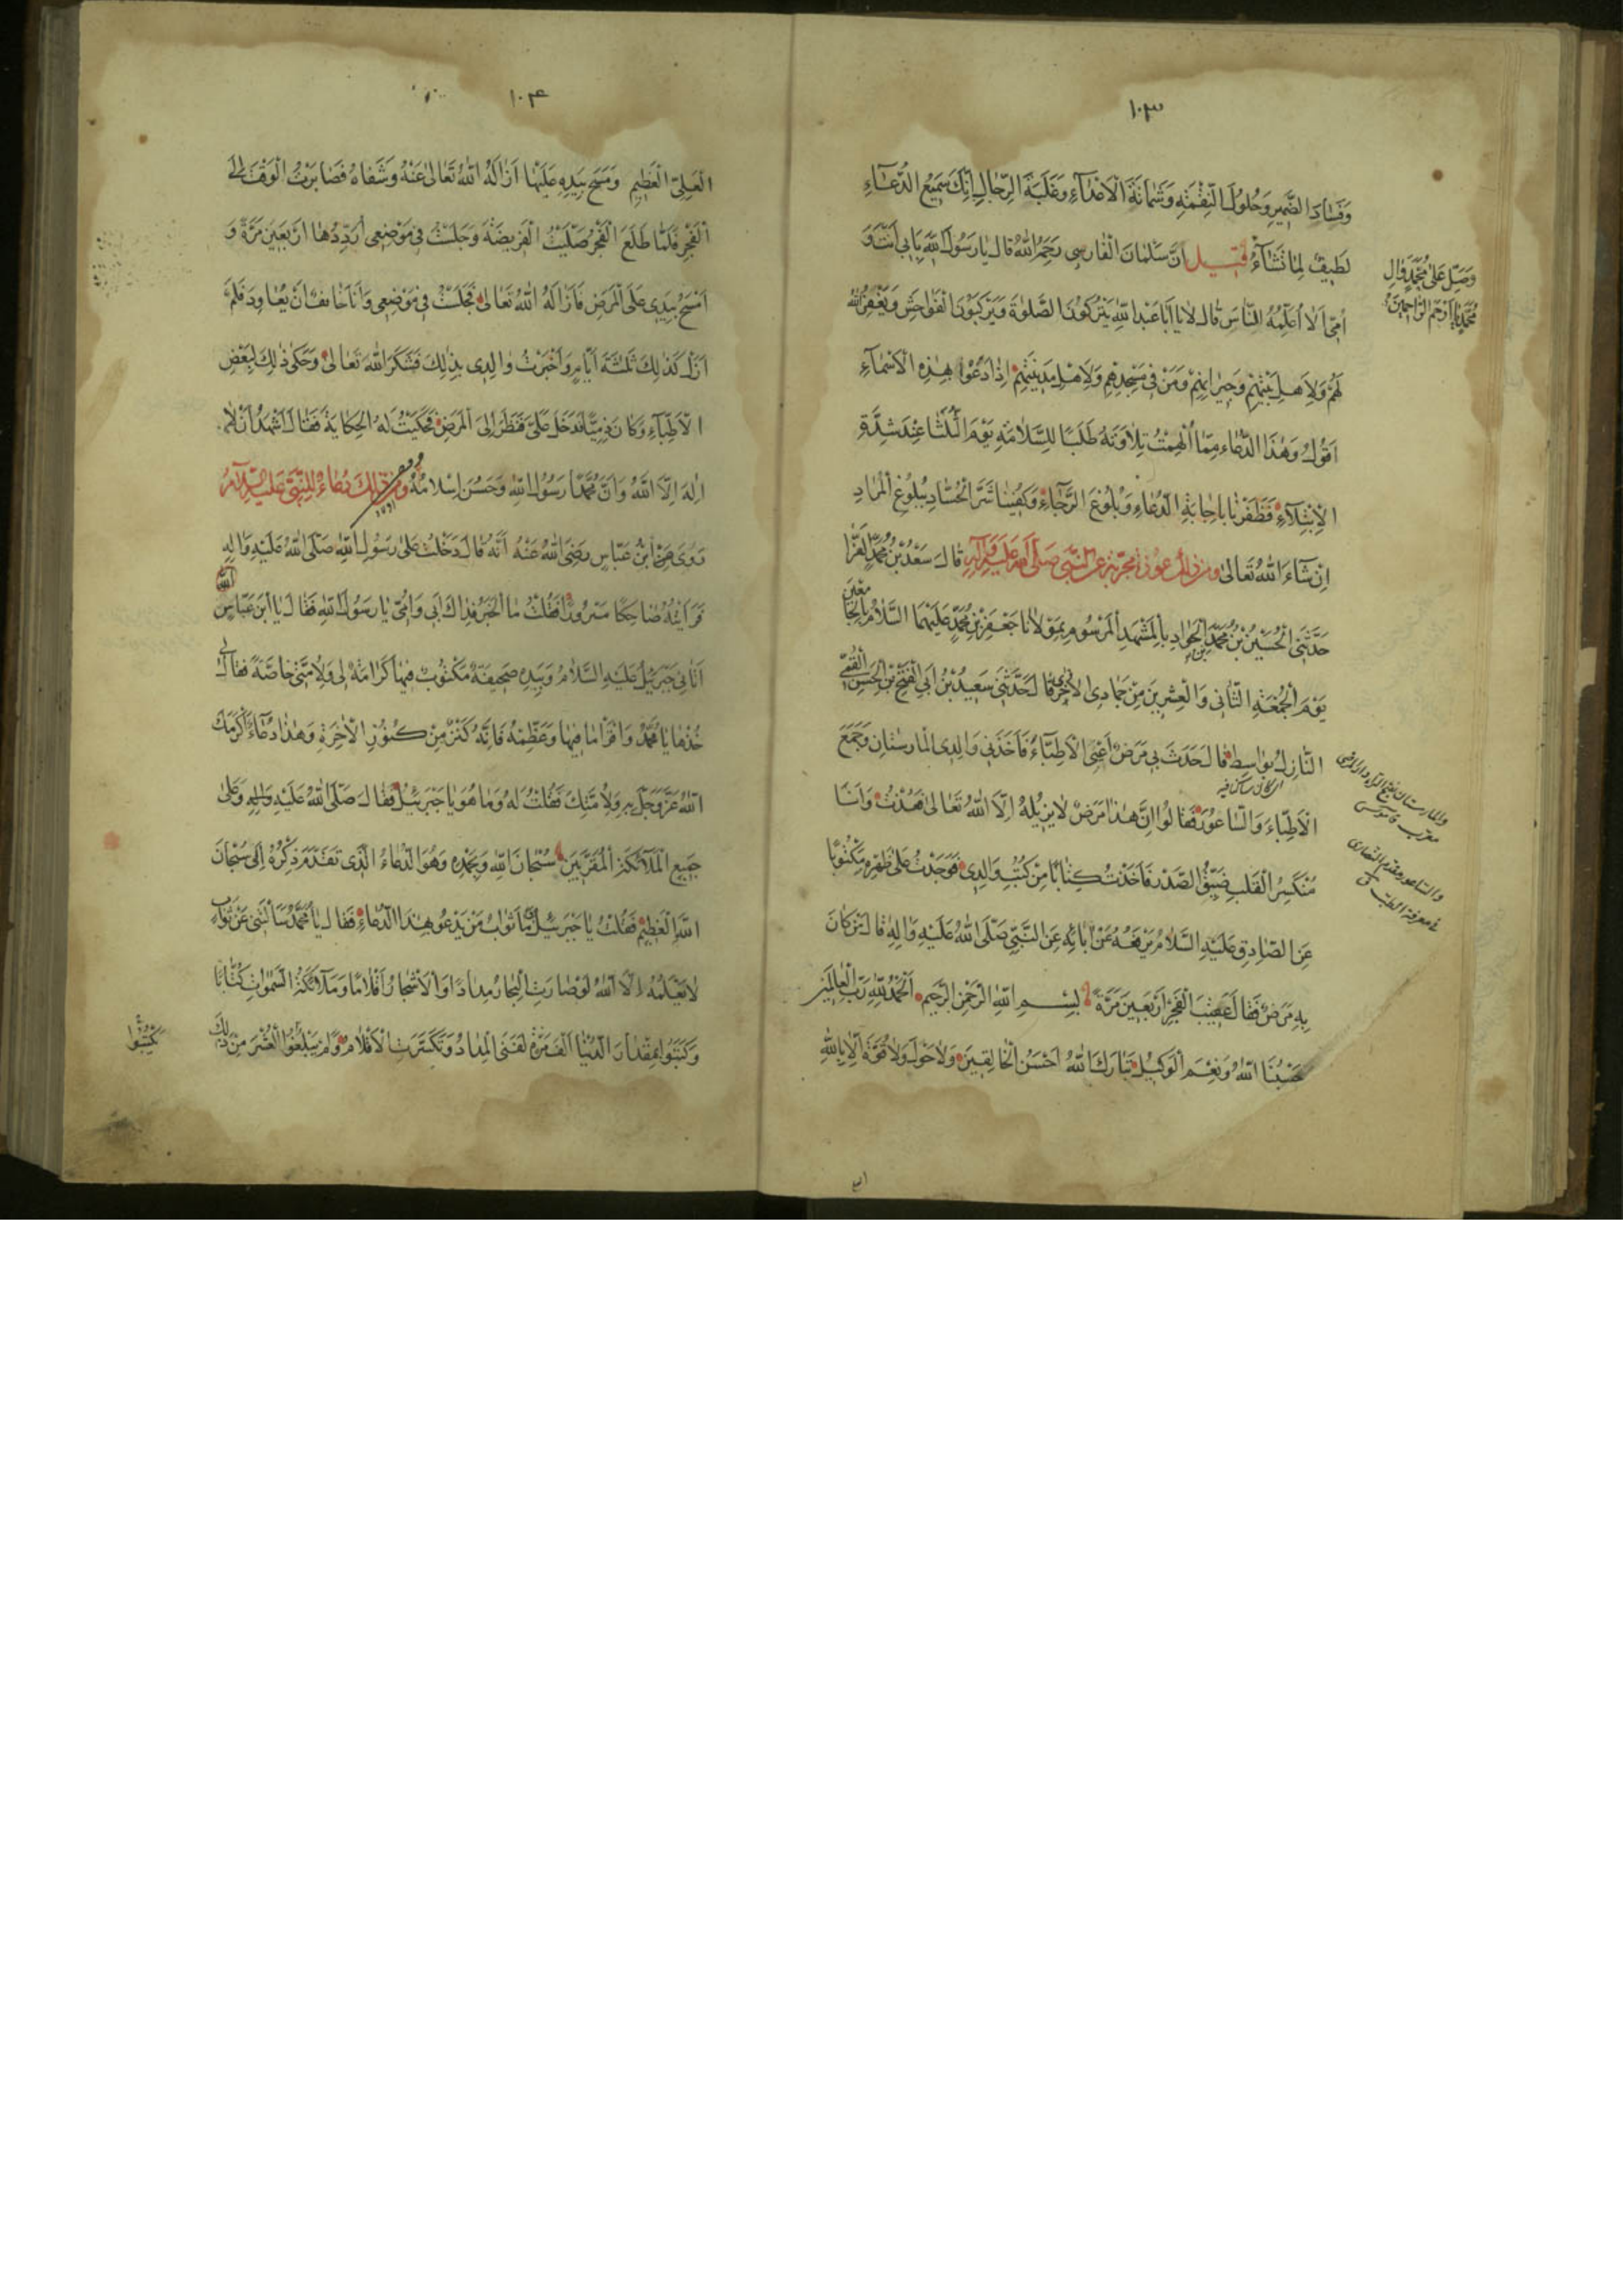 ١٠٣
وَفَسَادَ الضَّمِيرِ وَحُلُولَ النَّقِمَةِ وَشَمَاتَةَ الْاَعْدَاءِ وَغَلَبَةَ الرِّجَالِ اِنَّكَ سَمِيعُ الدُّعَاءِ
لَطِيفٌ لِمَا تَشَاءُ قيل اَنَّ سَلْمَانَ الْفَارِسِي رَحِمَهُ اللّٰهُ قَالَ يَا رَسُولَ اللّٰهِ بِاَبِي اَنْتَ وَ
وَصَلِّ عَلٰى مُحَمَّدٍ وَاٰلِ
مُحَمَّدٍ يَا اَرْحَمَ الرَّاحِمِينَ
اُمِّي اَلَا اُعَلِّمُهُ النَّاسَ قَالَ لَا يَا اَبَا عَبْدِ اللّٰهِ يَتْرُكُونَ الصَّلٰوةَ وَيَرْكَبُونَ الْفَوَاحِشَ وَيَغْفِرُ اللّٰهُ
لَهُمْ وَلِاَهْلِ بَيْتِهِمْ وَجِيرَانِهِمْ وَمَنْ فِي مَسْجِدِهِمْ وَلِاَهْلِ مَدِينَتِهِمْ اِذَا دَعَوْا بِهٰذِهِ الْاَسْمَاءِ
اَقُولُ وَهٰذَا الدُّعَاء مِمَّا اُلْهِمْتُ تِلَاوَتَهُ طَلَبًا لِلسَّلَامَةِ يَوْمَ الثُّلَثَا عِنْدَ شِدَّةِ
الْاِبْتِلَاءِ فَظَفِرْنَا بِاِجَابَةِ الدُّعَاءِ وَبُلُوغِ الرَّجَاءِ وَكُفِينَا شَرَّ الْحُسَّادِ بِبُلُوغِ الْمُرَادِ
اِنْ شَاءَ اللّٰهُ تَعَالٰى ومن ذلك عوذة مجربة عن النبي صلى الله عليه وآله قَالَ سَعْدُ بْنُ مُحَمَّدٍ الْفَرَّا
حَدَّثَنِي الْحُسَيْنُ بْنُ مُحَمَّدٍ الْجَوَاد بِالْمَشْهَدِ الْمَرْسُومِ بِمَوْلَانَا جَعْفَرِ بْنِ مُحَمَّدٍ عَلَيْهِمَا السَّلَامُ
يَوْمَ الْجُمُعَةِ الثَّانِي وَالْعِشْرِينَ مِنْ جُمَادِى الْاُخْرٰى قَالَ حَدَّثَنِي سَعِيدُ بْنُ اَبِي الْفَتْحِ بْنِ الْحَسَنِ الْقُمِّي
النَّازِلُ بِوَاسِط قَالَ حَدَثَ بِي مَرَضٌ اَعْيَى الْاَطِبَّاءَ فَاَخَذَنِي وَالِدِي الْمَارِسْتَانِ وَجَمَعَ
الْاَطِبَّاءَ وَالسَّاعُورَ فَقَالُوا اِنَّ هٰذَا مَرَضٌ لَا يُزِيلُهُ اِلَّا اللّٰهُ تَعَالٰى فَعُدْتُ وَاَنَا
مُنْكَسِرُ الْقَلْبِ ضَيِّقُ الصَّدْرِ فَاَخَذْتُ كِتَابًا مِنْ كُتُبِ وَالِدِي فَوَجَدْتُ عَلٰى ظَهْرِهِ مَكْتُوبًا
والساعور مقدم النصارى
في معرفة الطب
عَنِ الصَّادِقِ عَلَيْهِ السَّلَامُ يَرْفَعُهُ عَنْ اٰبَائِهِ عَنِ النَّبِيِّ صَلَّى اللّٰهُ عَلَيْهِ وَاٰلِهِ قَالَ مَنْ كَانَ
بِهِ مَرَضٌ فَقَالَ عَقِيبَ الْفَجْرِ اَرْبَعِينَ مَرَّةً بِسْمِ اللّٰهِ الرَّحْمٰنِ الرَّحِيمِ اَلْحَمْدُ لِلّٰهِ رَبِّ الْعَالَمِينَ
حَسْبُنَا اللّٰهُ وَنِعْمَ الْوَكِيلُ تَبَارَكَ اللّٰهُ اَحْسَنُ الْخَالِقِينَ وَلَا حَوْلَ وَلَا قُوَّةَ اِلَّا بِاللّٰهِ
١٠٤
الْعَلِيِّ الْعَظِيمِ وَمَسَحَ بِيَدِهِ عَلَيْهَا اَزَالَهُ اللّٰهُ تَعَالٰى عَنْهُ وَشَفَاهُ فَصَابَرْتُ الْوَقْتَ اِلٰى
الْفَجْرِ فَلَمَّا طَلَعَ الْفَجْرُ صَلَّيْتُ الْفَرِيضَةَ وَجَلَسْتُ فِي مَوْضِعِي اُرَدِّدُهَا اَرْبَعِينَ مَرَّةً وَ
اَمْسَحُ بِيَدِي عَلَى الْمَرَضِ فَاَزَالَهُ اللّٰهُ تَعَالٰى فَجَلَسْتُ فِي مَوْضِعِي وَاَنَا خَائِفٌ اَنْ يُعَاوِدَ فَلَمْ
اَزَلْ كَذٰلِكَ ثَلٰثَةَ اَيَّامٍ وَاَخْبَرْتُ وَالِدِي بِذٰلِكَ فَشَكَرَ اللّٰهَ تَعَالٰى وَحَكٰى ذٰلِكَ لِبَعْضِ
الْاَطِبَّاءِ وَكَانَ ذِمِّيًّا فَدَخَلَ عَلَيَّ فَنَظَرَ اِلَى الْمَرَضِ فَحَكَيْتُ لَهُ الْحِكَايَةَ فَقَالَ اَشْهَدُ اَنْ لَا
اِلٰهَ اِلَّا اللّٰهُ وَاَنَّ مُحَمَّدًا رَسُولُ اللّٰهِ وَحَسُنَ اِسْلَامُهُ ومن ذلك دعاء للنبي عليه السلام
رَوٰى ابْنُ عَبَّاسٍ رَضِيَ اللّٰهُ عَنْهُ اَنَّهُ قَالَ دَخَلْتُ عَلٰى رَسُولِ اللّٰهِ صَلَّى اللّٰهُ عَلَيْهِ وَاٰلِهِ
فَرَاَيْتُهُ ضَاحِكًا مَسْرُورًا فَقُلْتُ مَا الْخَبَرُ فِدَاكَ اَبِي وَاُمِّي يَا رَسُولَ اللّٰهِ فَقَالَ يَا ابْنَ عَبَّاسٍ
اَتَانِي جَبْرَئِيلُ عَلَيْهِ السَّلَامُ وَبِيَدِهِ صَحِيفَةٌ مَكْتُوبٌ فِيهَا كَرَامَةٌ لِي وَلِاُمَّتِي خَاصَّةً فَقَالَ لِي
خُذْهَا يَا مُحَمَّدُ وَاقْرَأْ مَا فِيهَا وَعَظِّمْهُ فَاِنَّهُ كَنْزٌ مِنْ كُنُوزِ الْاٰخِرَةِ وَهٰذَا دُعَاءٌ اَكْرَمَكَ
اللّٰهُ عَزَّ وَجَلَّ بِهِ وَلِاُمَّتِكَ فَقُلْتُ لَهُ وَمَا هُوَ يَا جَبْرَئِيلُ فَقَالَ صَلَّى اللّٰهُ عَلَيْهِ وَاٰلِهِ وَعَلٰى
جَمِيعِ الْمَلَائِكَةِ الْمُقَرَّبِينَ سُبْحَانَ اللّٰهِ وَبِحَمْدِهِ وَهُوَ الدُّعَاءُ الَّذِي تَقَدَّمَ ذِكْرُهُ اِلٰى سُبْحَانَ
اللّٰهِ الْعَظِيمِ فَقُلْتُ يَا جَبْرَئِيلُ مَا ثَوَابُ مَنْ يَدْعُو بِهٰذَا الدُّعَاءِ فَقَالَ يَا مُحَمَّدُ سَاَلْتَنِي عَنْ ثَوَابٍ
لَا يَعْلَمُهُ اِلَّا اللّٰهُ لَوْ صَارَتِ الْبِحَارُ مِدَادًا وَالْاَشْجَارُ اَقْلَامًا وَمَلَائِكَةُ السَّمٰوَاتِ كُتَّابًا
وَكَتَبُوا بِمِقْدَارِ الدُّنْيَا اَلْفَ مَرَّةٍ لَفَنَى الْمِدَادُ وَتَكَسَّرَتِ الْاَقْلَامُ وَلَمْ يَبْلُغُوا الْعُشْرَ مِنْ ذٰلِكَ